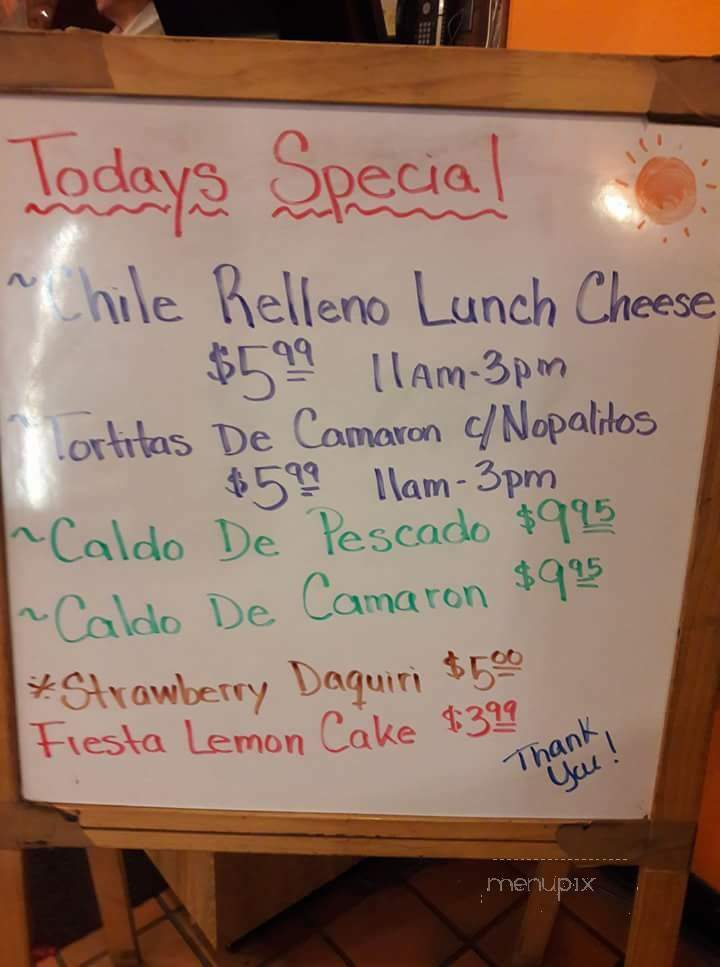 Todays Special
~Chile Relleno Lunch Cheese
$5.99 11am-3pm
~Tortitas De Camaron c/Nopalitos
$5.99 11am-3pm
~Caldo De Pescado $9.95
~Caldo De Camaron $9.95
*Strawberry Daquiri $5.00
Fiesta Lemon Cake $3.99
Thank
You!
menupix